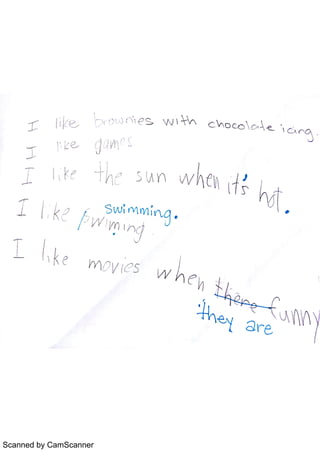 I like brownies with chocolate icing.
I like games
I like the sun when it's hot.
I like swimming.
pwiming.
I like movies when there funny
they are
Scanned by CamScanner